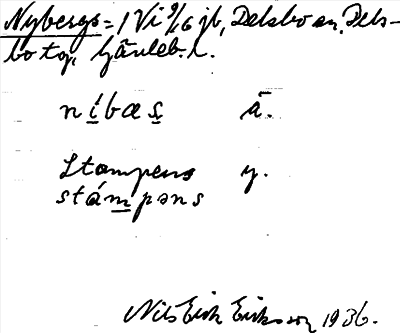 Nybergs = 1 Vi 9/16 jb, Delsbo sn, Dels-
bo tg, Gävleb. l.
níbas ä.
Stampens y.
stámpəns
Nils Erik Eriksson 1936.